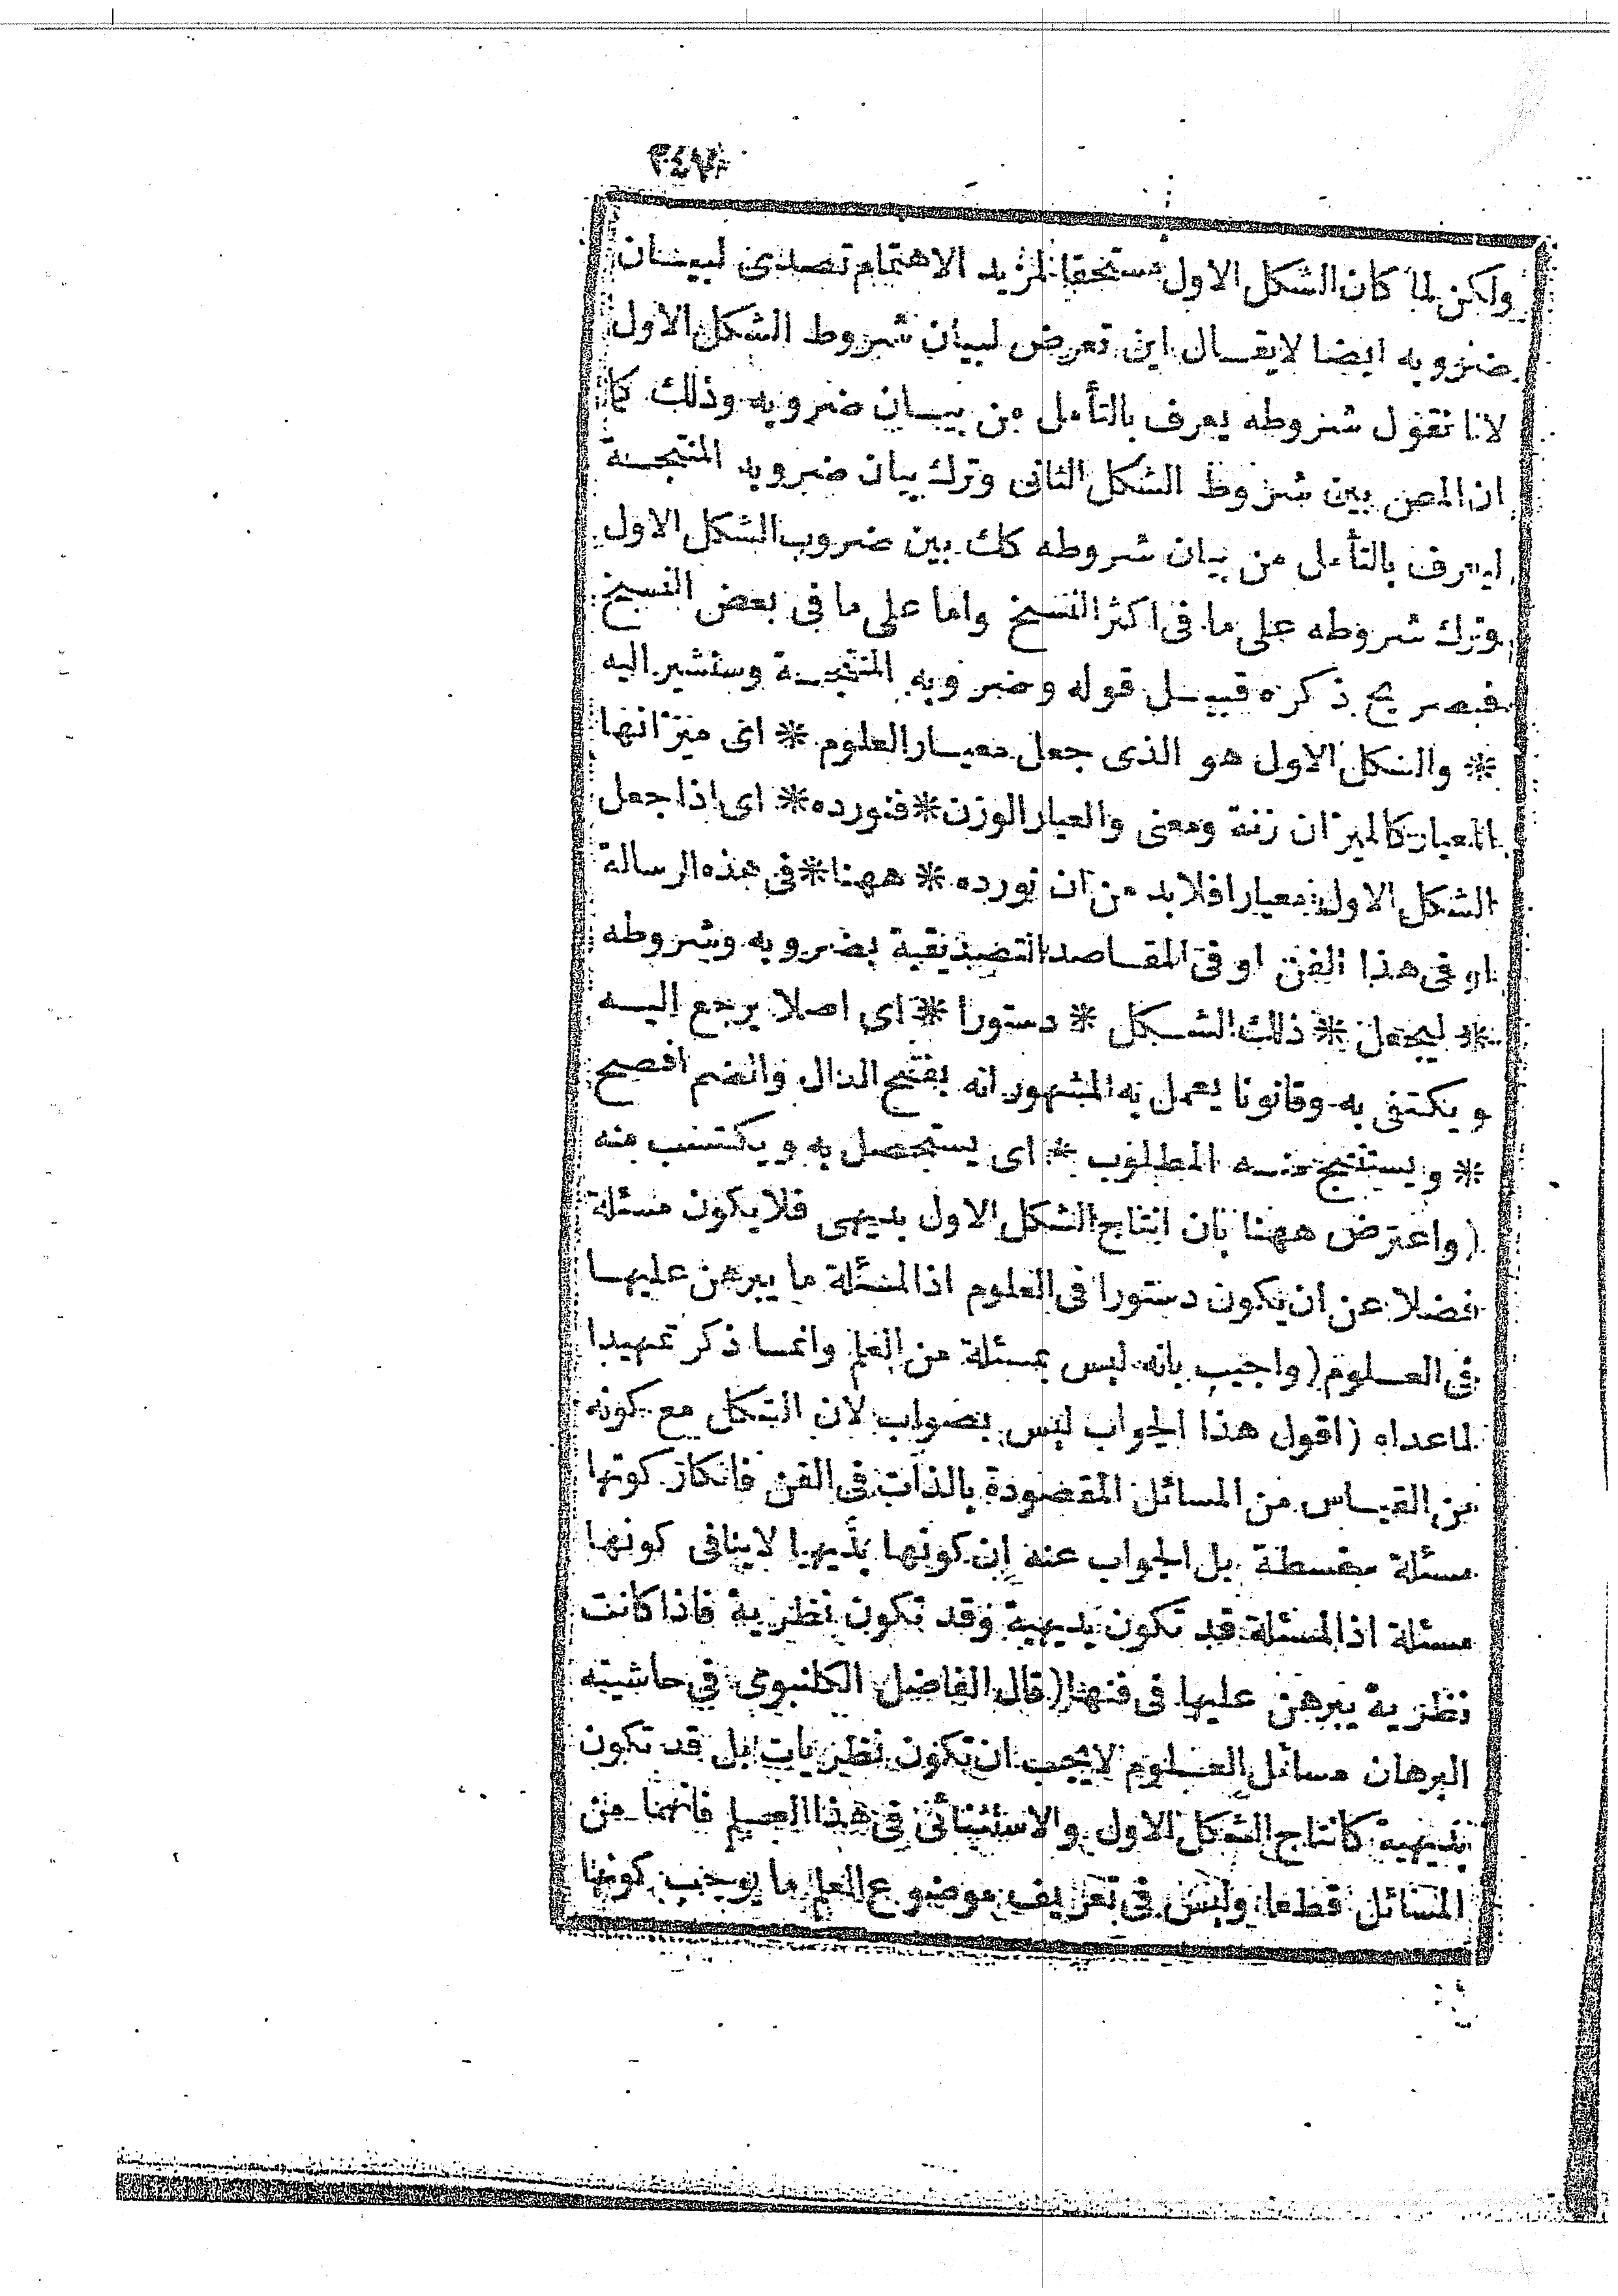 ولكن لما كان الشكل الاول مستحقا لمزيد الاهتمام تصدى لبيان
ضروبه ايضا لايقال اين تعرض لبيان شروط الشكل الاول
لانا نقول شروطه يعرف بالتأمل من بيان ضروبه وذلك كما
ان المص بين شروط الشكل الثانى وترك بيان ضروبه المنتجة
ليعرف بالتأمل من بيان شروطه كك بين ضروب الشكل الاول
وترك شروطه على ما فى اكثر النسخ واما على ما فى بعض النسخ
فبصريح ذكره قبيل قوله وضروبه المنتجة وستشير اليه
* والشكل الاول هو الذى جعل معيار العلوم * اى ميزانها
المعيار كالميزان زنة ومعنى والعيار الوزن * فنورده * اى اذا جعل
الشكل الاول معيارا فلابد من ان نورده * ههنا * فى هذه الرسالة
او فى هذا الفن او فى المقاصد التصديقية بضروبه وشروطه
* ليجعل * ذلك الشكل * دستورا * اى اصلا يرجع اليه
ويكتفى به وقانونا يعمل به المشهور انه بفتح الدال والضم افصح
* ويستنتج منه المطلوب * اى يستحصل به ويكتسب منه
(واعترض ههنا بان انتاج الشكل الاول بديهى فلايكون مسئلة
فضلا عن ان يكون دستورا فى العلوم اذ المسئلة ما يبرهن عليها
فى العلوم (واجيب بانه ليس بمسئلة من العلم وانما ذكر تمهيدا
لما عداه (اقول هذا الجواب ليس بصواب لان الشكل مع كونه
من القياس من المسائل المقصودة بالذات فى الفن فانكار كونها
مسئلة سفسطة بل الجواب عنه ان كونها بديهيا لاينافى كونها
مسئلة اذ المسئلة قد تكون بديهية وقد تكون نظرية فاذا كانت
نظرية يبرهن عليها فى فنها (قال الفاضل الكلنبوى فى حاشيته
البرهان مسائل العلوم لايجب ان تكون نظريات بل قد تكون
بديهية كانتاج الشكل الاول والاستثنائى فى هذا العلم فانهما من
المسائل قطعا وليس فى تعريف موضوع العلم ما يوجب كونها